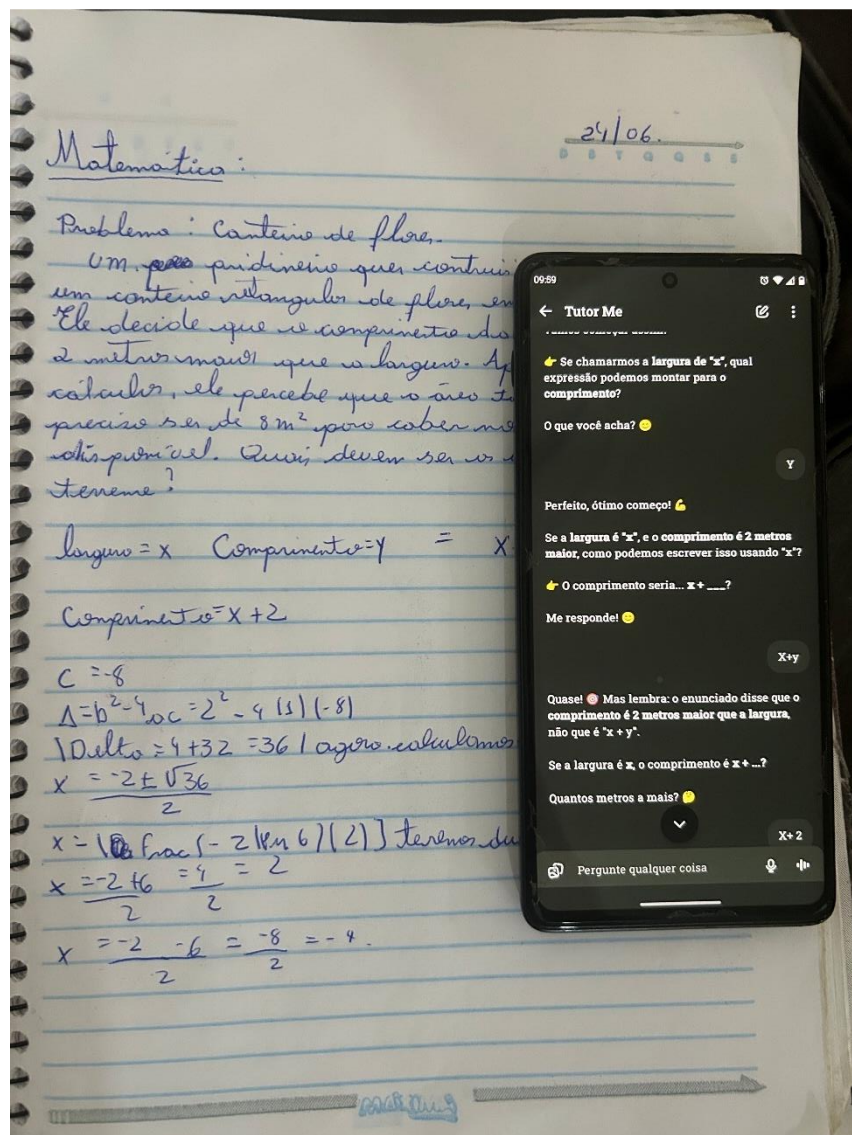 24/06.
D S T Q Q S S
Matemática:
Problema: Canteiro de flores.
Um jardineiro quer contruis
um canteiro retangular de flores en
Ele decide que o comprimento do
2 metros maior que a largura. Ap
cálculos, ele percebe que a área t
precisa ser de 8m² para caber no
disponível. Quais devem ser as
terreme?
largura = x Comprimento=y = X
Comprimento=x+2
C =-8
Δ=b²-4ac=2²-4(1)(-8)
\Delta=4+32=36/agora calculamos
x = -2±√36
2
x = \frac{-2\pm 6}{2}] teremos du
x = -2+6 = 4 = 2
2 2
x = -2 -6 = -8 = -4.
2 2
09:59
← Tutor Me
👉 Se chamarmos a largura de "x", qual
expressão podemos montar para o
comprimento?
O que você acha? 😊
Y
Perfeito, ótimo começo! 💪
Se a largura é "x", e o comprimento é 2 metros
maior, como podemos escrever isso usando "x"?
👉 O comprimento seria... x + ___?
Me responde! 😊
X+y
Quase! 🎯 Mas lembra: o enunciado disse que o
comprimento é 2 metros maior que a largura,
não que é "x + y".
Se a largura é x, o comprimento é x + ...?
Quantos metros a mais? 🤔
X+2
Pergunte qualquer coisa